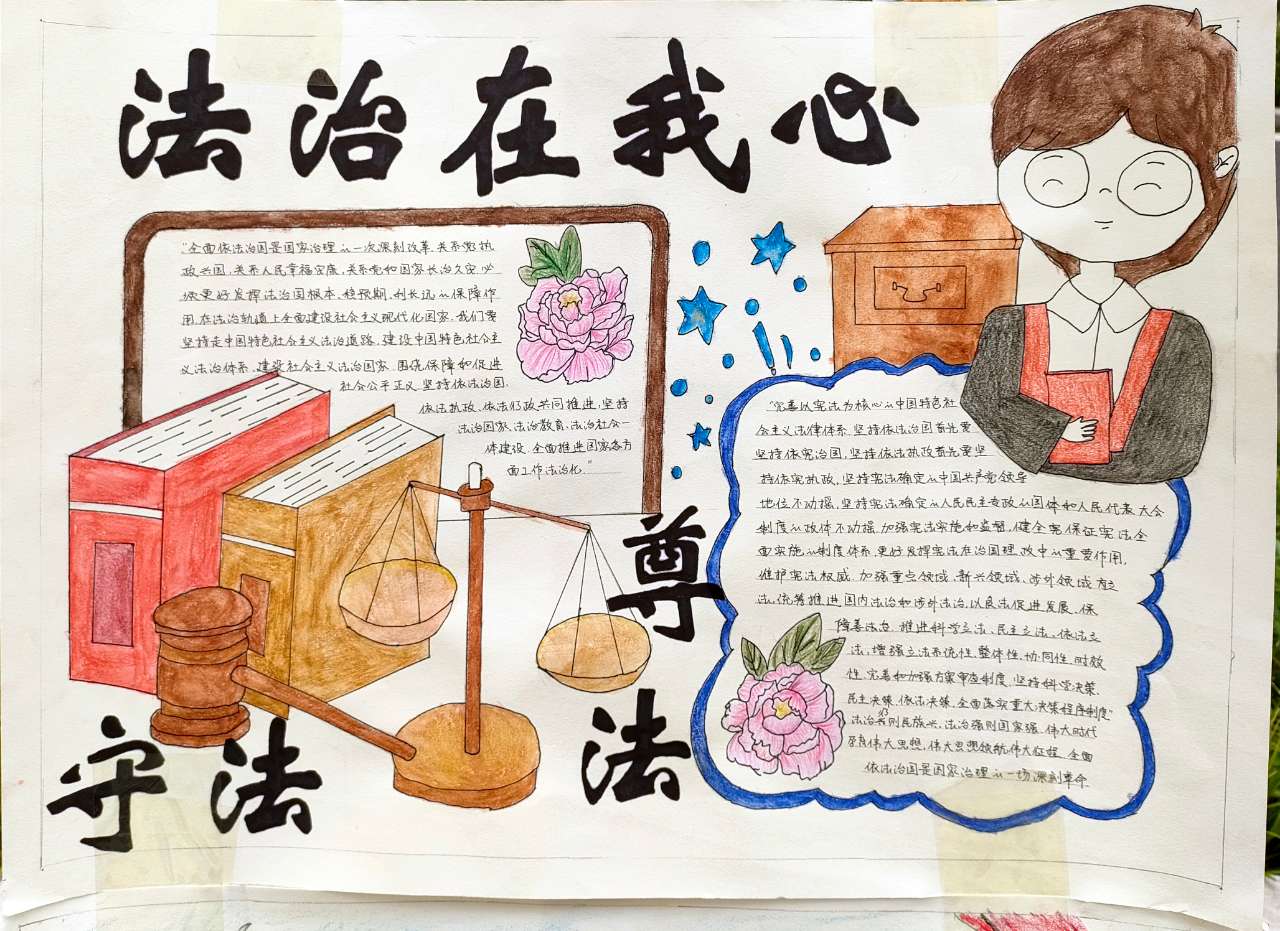 法治在我心
"全面依法治国是国家治理的一次深刻改革.关系党执
政兴国,关系人民幸福安康,关系党和国家长治久安.必
须更好发挥法治固根本、稳预期、利长远的保障作
用.在法治轨道上全面建设社会主义现代化国家.我们要
坚持走中国特色社会主义法治道路.建设中国特色社会主
义法治体系、建设社会主义法治国家.围绕保障和促进
社会公平正义.坚持依法治国.
依法执政、依法行政共同推进,坚持
法治国家、法治教育、法治社会一
体建设.全面推进国家各方
面工作法治化."
尊
法
守法
"完善以宪法为核心的中国特色社
会主义法律体系.坚持依法治国首先要
坚持依宪治国,坚持依法执政首先要坚
持依宪执政,坚持宪法确定的中国共产党领导
地位不动摇,坚持宪法确定的人民民主专政的国体和人民代表大会
制度的政体不动摇.加强宪法实施和监督,健全宪保证宪法全
面实施的制度体系.更好发挥宪法在治国理政中的重要作用,
维护宪法权威.加强重点领域、新兴领域、涉外领域立
法,统筹推进国内法治和涉外法治.以良法促进发展、保
障善治.推进科学立法、民主立法、依法立
法,增强立法系统性、整体性、协同性、时效
性.完善和加强方案审查制度.坚持科学决策、
民主决策、依法决策.全面落实重大决策程序制度"
法治兴则民族兴,法治强则国家强.伟大时代
孕育伟大思想,伟大思想领航伟大征程.全面
依法治国是国家治理的一场深刻革命